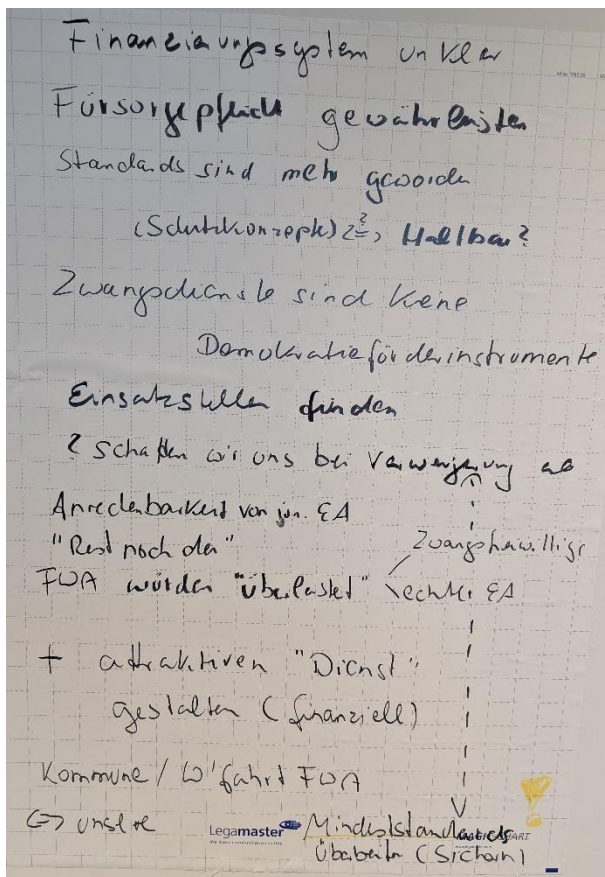 Finanzierungssystem unklar
Fürsorgepflicht gewährleisten
Standards sind mehr geworden
(Schutzkonzepte) ? => Haltbar?
Zwangsdienste sind keine
Demokratieförderinstrumente
Einsatzstellen finden
? schaffen wir uns bei Verweigerung ab
Anrechenbarkeit von jur. EA
"Rest noch da"
Zwangsfreiwillige
FWA würden "überlastet" echter EA
+ attraktiven "Dienst"
gestalten (finanziell)
Kommune / W'fahrt FWA
<=> unsere
Legamaster
Mindeststandards
überarbeiten (Sichern)